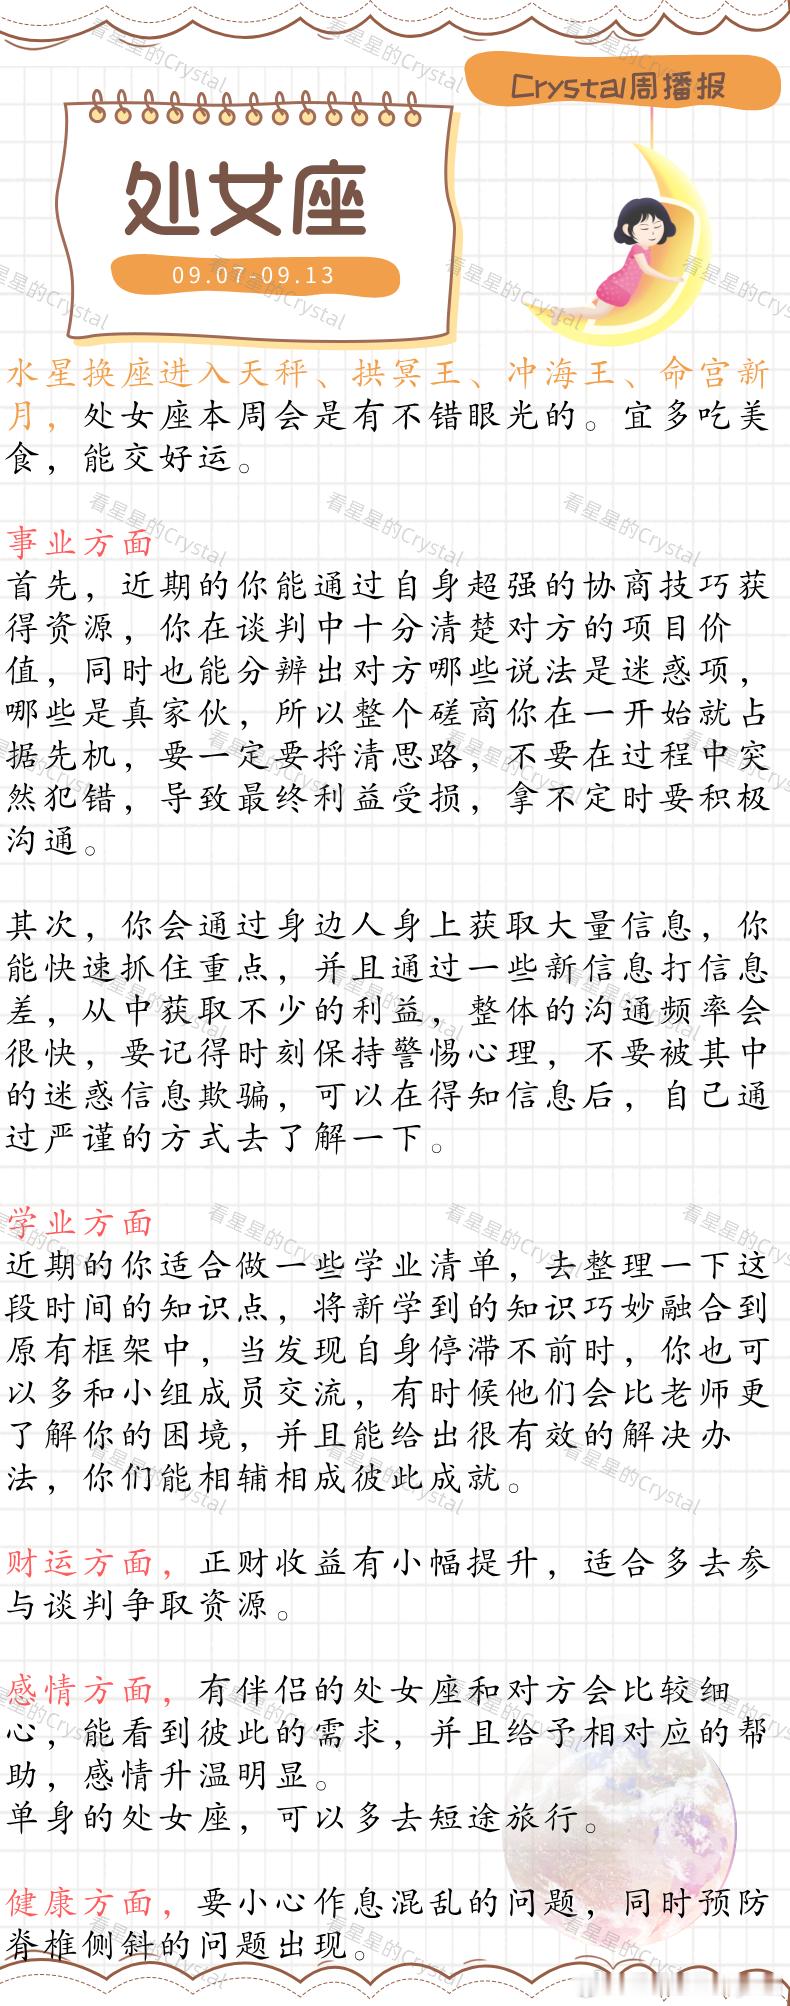 Crystal周播报
处女座
09.07-09.13
水星换座进入天秤、拱冥王、冲海王、命宫新
月，处女座本周会是有不错眼光的。宜多吃美
食，能交好运。
事业方面
首先，近期的你能通过自身超强的协商技巧获
得资源，你在谈判中十分清楚对方的项目价
值，同时也能分辨出对方哪些说法是迷惑项，
哪些是真家伙，所以整个磋商你在一开始就占
据先机，要一定要捋清思路，不要在过程中突
然犯错，导致最终利益受损，拿不定时要积极
沟通。
其次，你会通过身边人身上获取大量信息，你
能快速抓住重点，并且通过一些新信息打信息
差，从中获取不少的利益，整体的沟通频率会
很快，要记得时刻保持警惕心理，不要被其中
的迷惑信息欺骗，可以在得知信息后，自己通
过严谨的方式去了解一下。
学业方面
近期的你适合做一些学业清单，去整理一下这
段时间的知识点，将新学到的知识巧妙融合到
原有框架中，当发现自身停滞不前时，你也可
以多和小组成员交流，有时候他们会比老师更
了解你的困境，并且能给出很有效的解决办
法，你们能相辅相成彼此成就。
财运方面，正财收益有小幅提升，适合多去参
与谈判争取资源。
感情方面，有伴侣的处女座和对方会比较细
心，能看到彼此的需求，并且给予相对应的帮
助，感情升温明显。
单身的处女座，可以多去短途旅行。
健康方面，要小心作息混乱的问题，同时预防
脊椎侧斜的问题出现。
看星星的Crystal